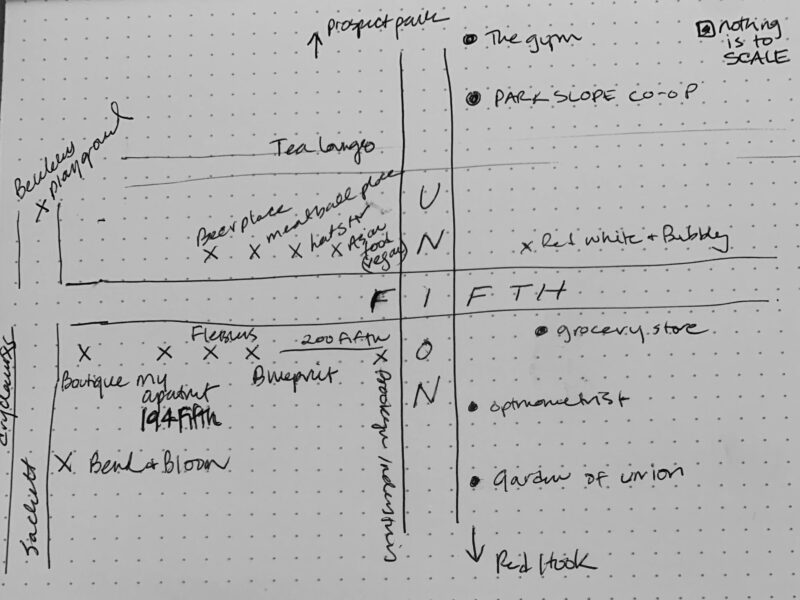 ↑ Prospect park
• The gym
nothing
is to
SCALE
• PARK SLOPE CO-OP
Tea lounge
X playground
Beer place
meatball place
Asian
food
(vegan)
X Red white + Bubbly
UNION
FIFTH
• grocery store
Flessins
200 Fifth
Boutique
my
apartmt
194 Fifth
Blueprint
Brooklyn Industries
• optmometrist
X Bend + Bloom
Sackett
• garden of union
↓ Red Hook